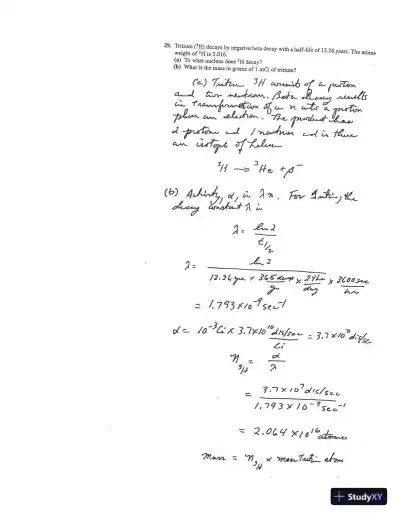 29. Tritium (³H) decays by negative beta decay with a half-life of 12.26 years. The atomic
weight of ³H is 3.016.
(a) To what nucleus does ³H decay?
(b) What is the mass in grams of 1 mCi of tritium?
(a) Tritium ³H consists of a proton
and two neutrons. Beta decay results
in transformation of a n into a proton
plus an electron. The product has
2 protons and 1 neutron and is thus
an isotope of helium
³H → ³He + β⁻
(b) Activity, α, is λn. For tritium, the
decay constant λ is
λ = ln 2 / t1/2
λ = ln 2 / 12.26 yr × 365 days/yr × 24 hr/day × 3600 sec/hr
= 1.793 × 10⁻⁹ sec⁻¹
α = 10⁻³ Ci × 3.7×10¹⁰ dis/sec/Ci = 3.7×10⁷ dis/sec
n³H = α / λ
= 3.7×10⁷ dis/sec / 1.793 × 10⁻⁹ sec⁻¹
= 2.064 × 10¹⁶ atoms
mass = n³H × mass tritium atom
StudyXY